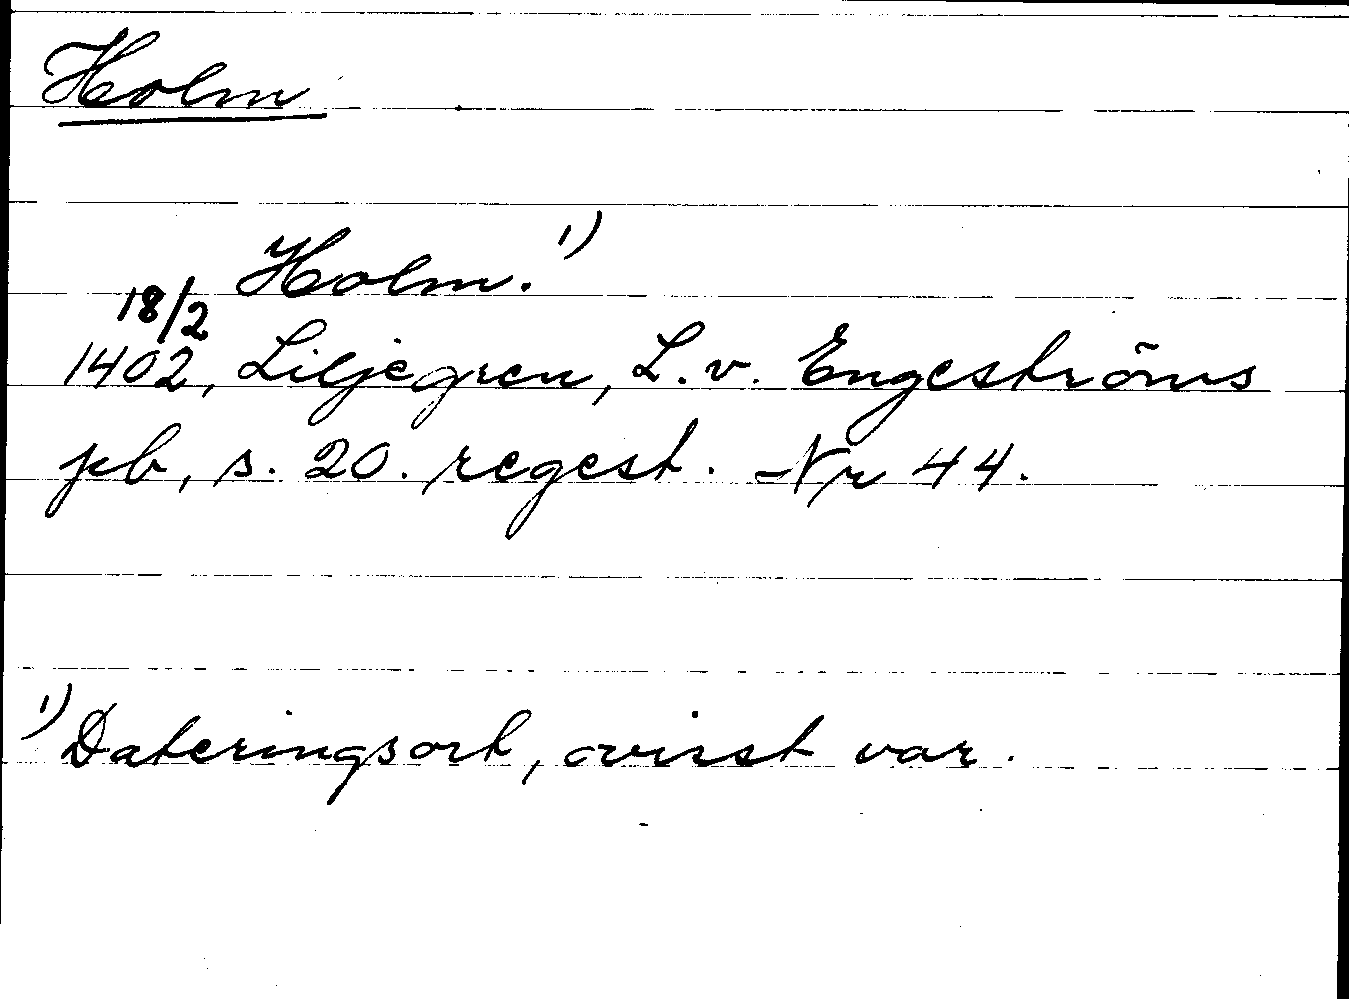 Holm
Holm. 1)
18/2
1402, Liljegren, L. v. Engeströms
pb, s. 20. regest. Nr 44.
1) Dateringsort, ovisst var.